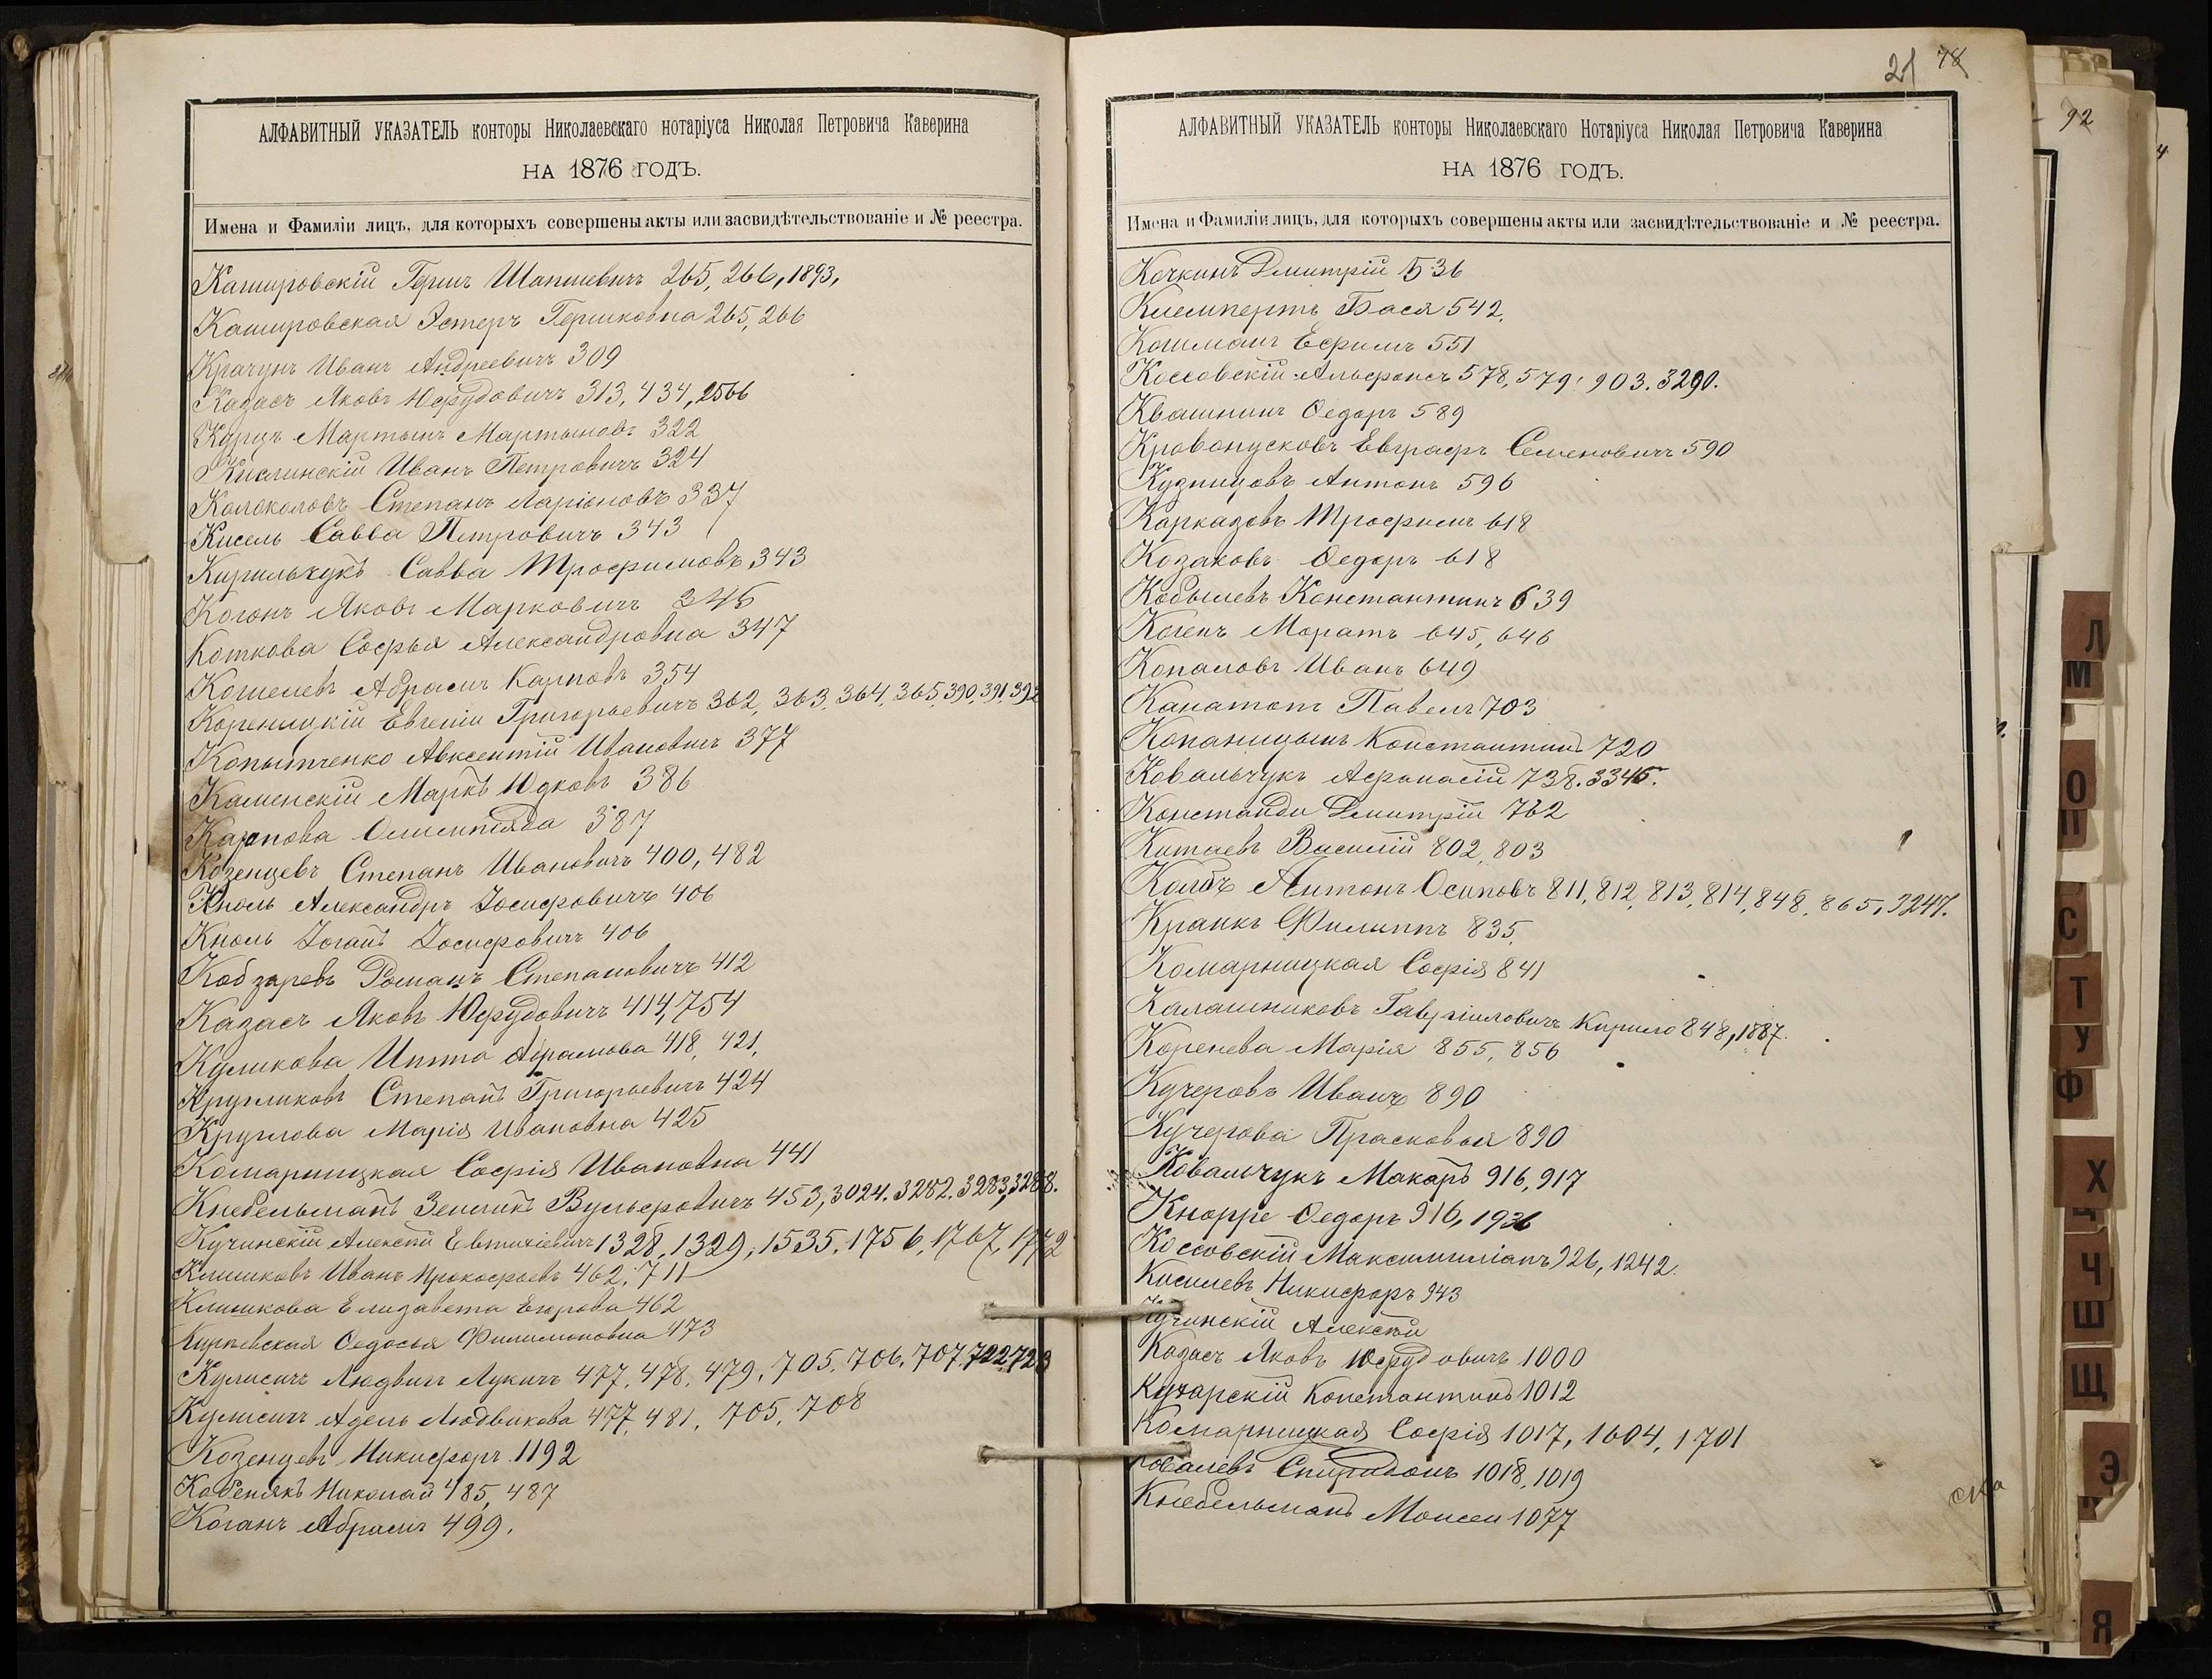 АЛФАВИТНЫЙ УКАЗАТЕЛЬ конторы Николаевскаго нотаріуса Николая Петровича Каверина
НА 1876 ГОДЪ.
Имена и Фамиліи лицъ, для которыхъ совершены акты или засвидѣтельствованіе и № реестра.
Кашировскій Гершъ Шапшевичъ 265, 266, 1893,
Кашировская Эстеръ Гершковна 265, 266
Крачунъ Иванъ Андреевичъ 309
Казасъ Яковъ Юфудовичъ 313, 434, 2566
Курцъ Мартынъ Мартыновъ 322
Кислинскій Иванъ Петровичъ 324
Колоколовъ Степанъ Ларіоновъ 337
Кисель Савва Петровичъ 343
Кирильчукъ Савва Трофимовъ 343
Когонъ Яковъ Марковичъ 346
Коткова Софья Александровна 347
Кошелевъ Абрамъ Карповъ 354
Кореницкій Евгеній Григорьевичъ 362, 363, 364, 365, 390, 391, 392
Копытченко Авксентій Ивановичъ 377
Каменскій Маркъ Юдковъ 386
Карпова Олимпіада 387
Козенцевъ Степанъ Ивановичъ 400, 482
Кноль Александръ Іосифовичъ 406
Кноль Іоганъ Іосифовичъ 406
Кобзаревъ Романъ Степановичъ 412
Казасъ Яковъ Юфудовичъ 414, 754
Куликова Ипта Абрамова 418, 421,
Кругликовъ Степанъ Григорьевичъ 424
Круглова Марія Ивановна 425
Комарницкая Софія Ивановна 441
Кнебельманъ Зелликъ Вульфовичъ 453, 3024. 3282. 3283, 3288.
Кучинскій Алексѣй Евтихіевичъ 1328, 1329, 1535, 1756, 1767, 1772
Климковъ Иванъ Прокофьевъ 462, 711
Климкова Елизавета Егорова 462
Курневская Федосья Филимоновна 473
Кулисичъ Людвигъ Лукичъ 477, 478, 479, 705, 706, 707, 722, 723
Кулисичъ Адель Людвикова 477, 481, 705, 708
Козенцевъ Никифоръ 1192
Кабенякъ Николай 485, 487
Коганъ Абрамъ 499.
21 78
АЛФАВИТНЫЙ УКАЗАТЕЛЬ конторы Николаевскаго Нотаріуса Николая Петровича Каверина
НА 1876 ГОДЪ.
Имена и Фамиліи лицъ, для которыхъ совершены акты или засвидѣтельствованіе и № реестра.
Кочкинъ Дмитрій 536
Клемпертъ Бася 542,
Кошманъ Ефимъ 551
Коссовскій Альфонсъ 578, 579, 903. 3290.
Квашнинъ Федоръ 589
Кровопусковъ Евграфъ Семеновичъ 590
Кузницовъ Антонъ 596
Карказовъ Трофимъ 618
Козаковъ Федоръ 618
Кобылевъ Константинъ 639
Когенъ Моратъ 645, 646
Копаловъ Иванъ 649
Канатопъ Павелъ 703
Копаницынъ Константинъ 720
Ковальчукъ Афанасій 738. 3345.
Констанди Дмитрій 762
Китаевъ Василій 802, 803
Колбъ Антонъ Осиповъ 811, 812, 813, 814, 848, 865, 3247.
Кранкъ Филиппъ 835,
Комарницкая Софія 841
Калашниковъ Гавріиловичъ Кирило 848, 1887.
Коренева Марія 855, 856
Кучеровъ Иванъ 890
Кучерова Прасковья 890
Ковальчукъ Макаръ 916, 917
Кнорре Федоръ 916, 1936
Коссовскій Максимиліанъ 926, 1242.
Киселевъ Никифоръ 943
Кучинскій Алексѣй
Казасъ Яковъ Юфудовичъ 1000
Кухарскій Константинъ 1012
Комарницкая Софія 1017, 1604, 1701
Ковалевъ Спиридонъ 1018, 1019
Кнебельманъ Моисей 1077
92
Л
М
О
П
С
Т
У
Ф
Х
Ц
Ч
Ш
Щ
Э
Я